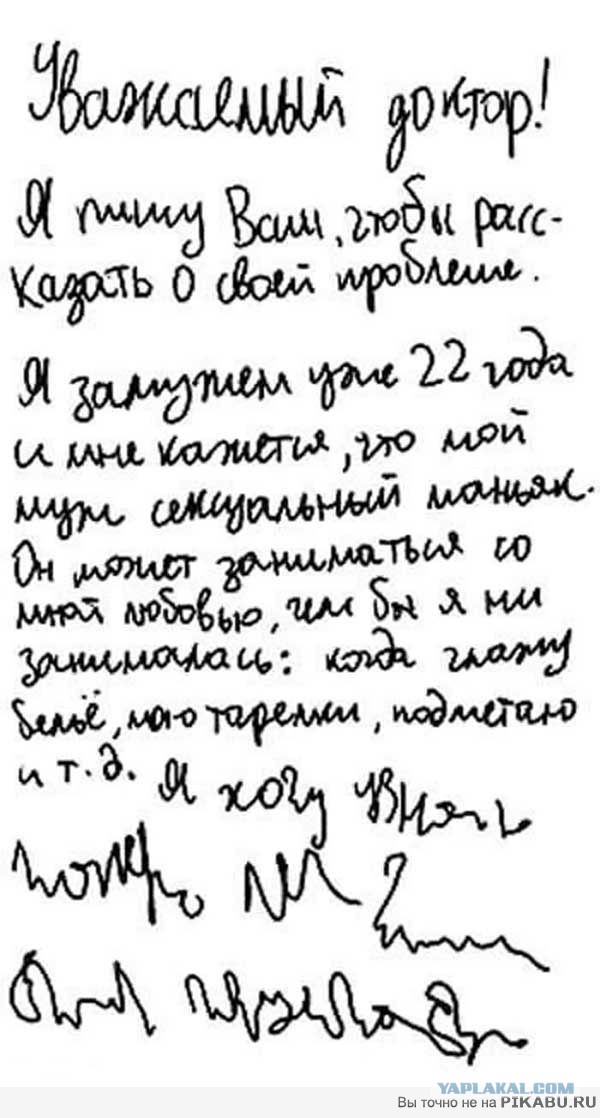 Уважаемый доктор!
Я пишу Вам, чтобы расс-
казать о своей проблеме.
Я замужем уже 22 года
и мне кажется, что мой
муж сексуальный маньяк.
Он может заниматься со
мной любовью, чем бы я ни
занималась: когда глажу
бельё, мою тарелки, подметаю
и т.д. Я хочу узнать
YAPLAKAL.COM
Вы точно не на PIKABU.RU